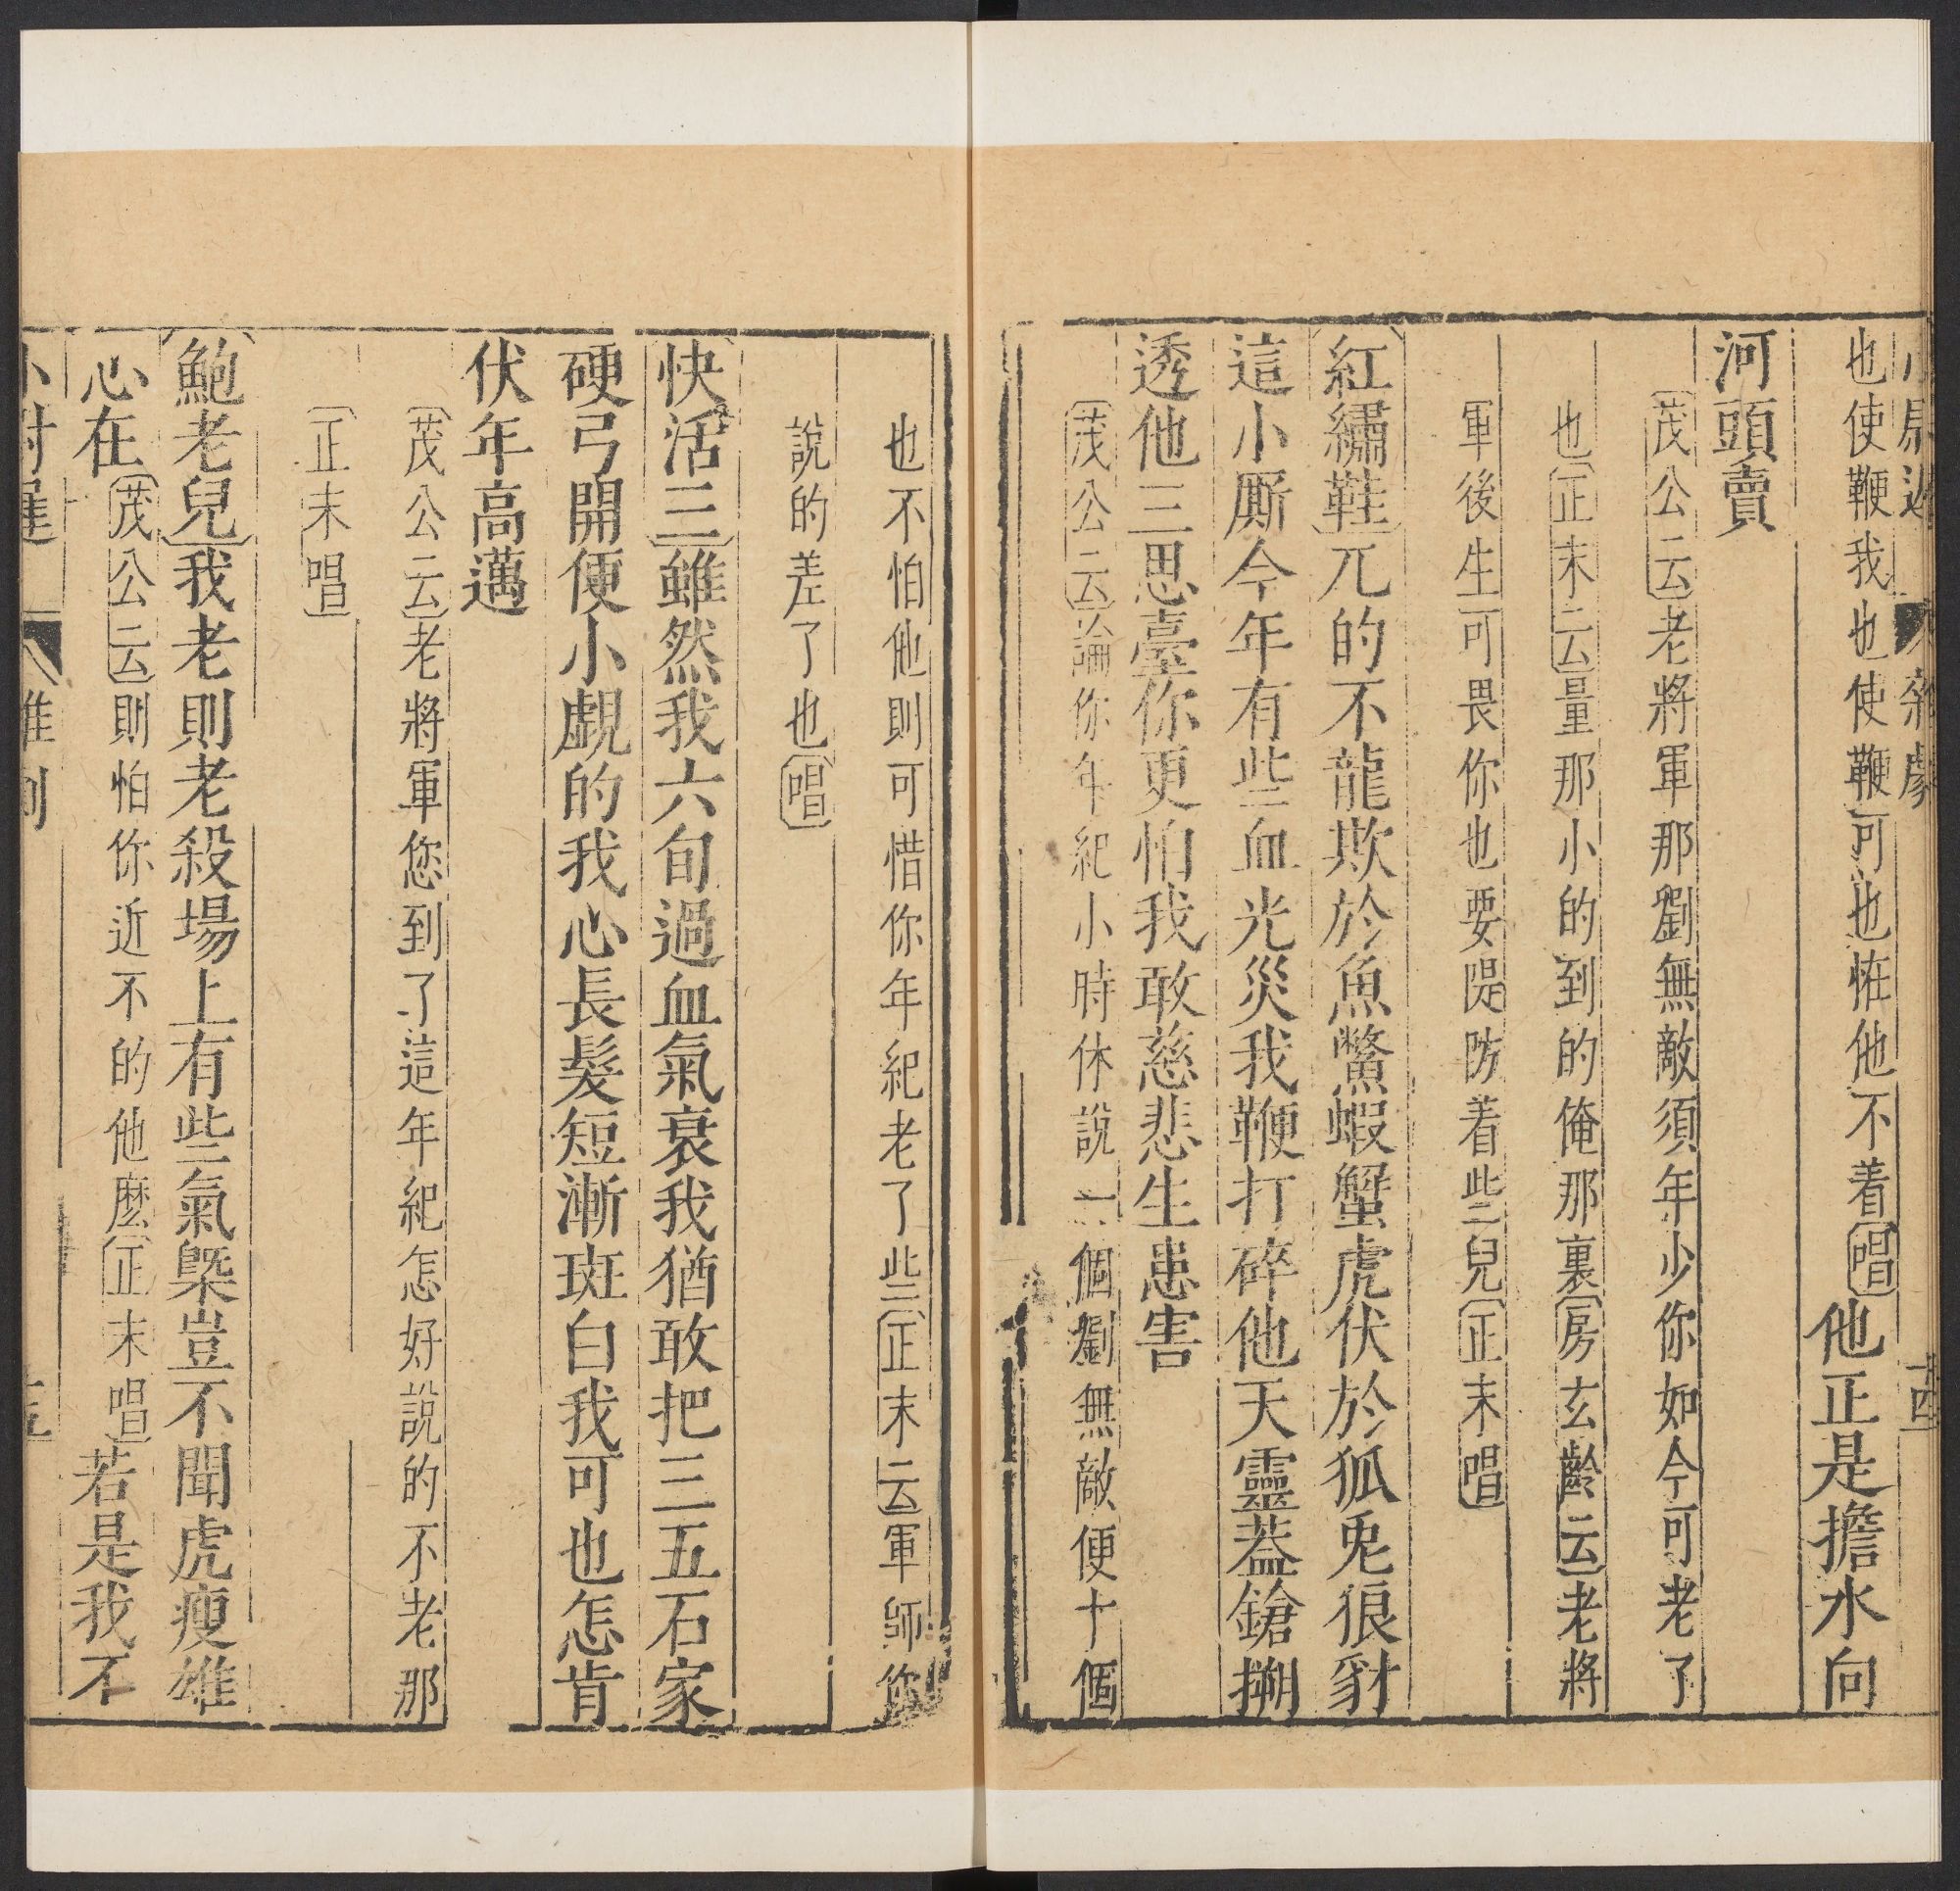 雜劇 十四
也使鞭我也使鞭可也怪他不着〔唱〕他正是擔水向
河頭賣
〔茂公云〕老將軍那劉無敵須年少你如今可老了
也〔正末云〕量那小的到的俺那裏〔房玄齡云〕老將
軍後生可畏你也要隄防着些兒〔正末唱〕
〔紅繡鞋〕兀的不龍欺於魚鱉蝦蟹虎伏於狐兎狼豺
這小厮今年有些血光災我鞭打碎他天靈葢鎗搠
透他三思臺你更怕我敢慈悲生患害
〔茂公云〕論你年紀小時休說一個劉無敵便十個
也不怕他則可惜你年紀老了些〔正末云〕軍師您
說的差了也〔唱〕
〔快活三〕雖然我六旬過血氣衰我猶敢把三五石家
硬弓開便小覷的我心長髮短漸斑白我可也怎肯
伏年高邁
〔茂公云〕老將軍您到了這年紀怎好說的不老那
〔正末唱〕
〔鮑老兒〕我老則老殺場上有些氣槩豈不聞虎瘦雄
心在〔茂公云〕則怕你近不的他麽〔正末唱〕若是我不